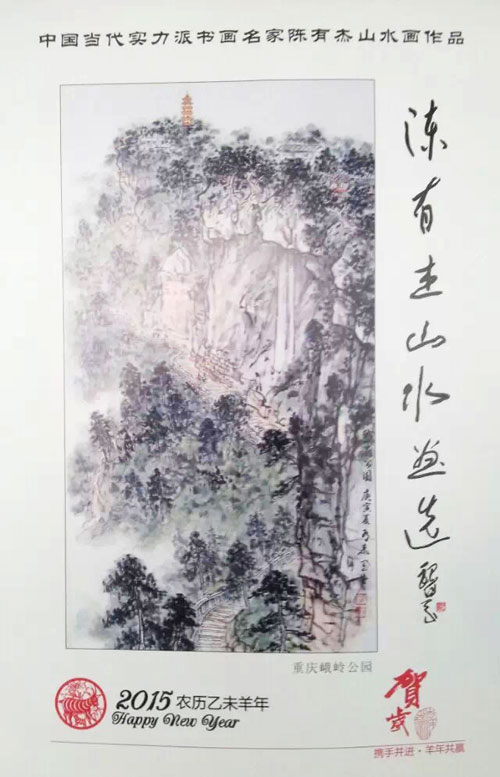 中国当代实力派书画名家陈有杰山水画作品
陈有杰山水画选
重庆峨岭公园
2015 农历乙未羊年
Happy New Year
贺岁
携手并进·羊年共赢